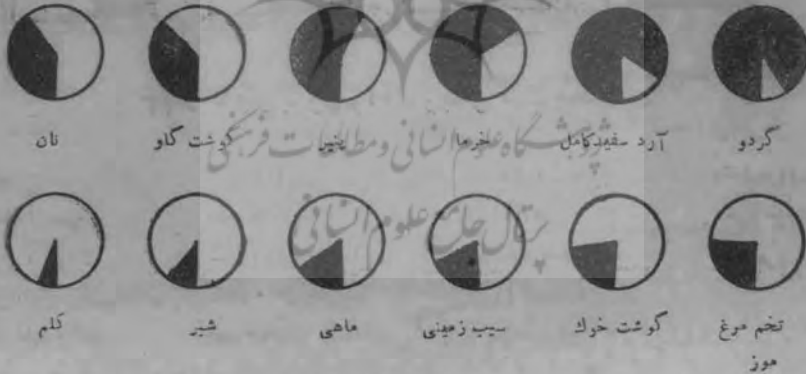 گردو آرد سفید کامل خرما پنیر گوشت گاو نان
پژوهشگاه علوم انسانی و مطالعات فرهنگی
پرتال جامع علوم انسانی
تخم مرغ گوشت خوك سیب زمینی ماهی شیر کلم
موز